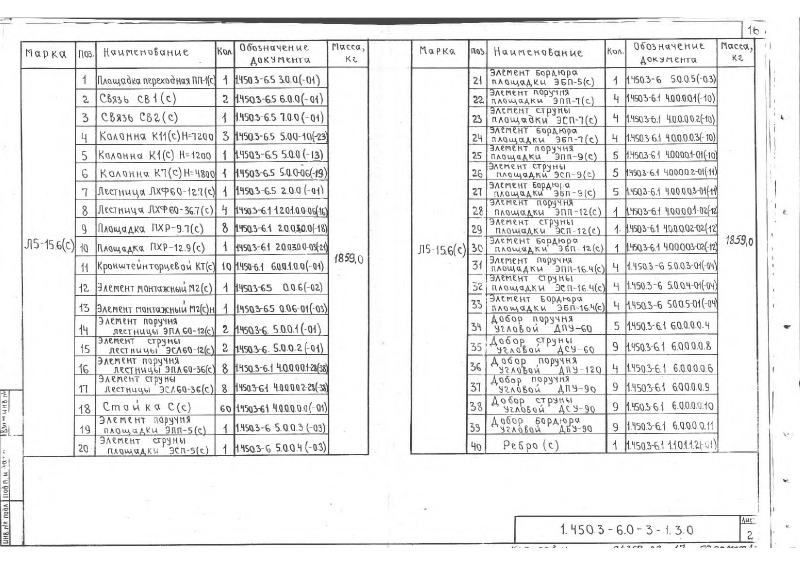 16
Марка Поз. Наименование Кол. Обозначение документа Масса, кг
Л5-15.6(с) 1859,0
1 Площадка переходная ПП-1(с) 1 1.450.3-6.5 3.0.0(-01)
2 Связь СВ1(с) 2 1.450.3-6.5 6.0.0(-01)
3 Связь СВ2(с) 1 1.450.3-6.5 7.0.0(-01)
4 Колонна К11(с) H=7200 3 1.450.3-6.5 5.0.0-10(-23)
5 Колонна К1(с) H=1200 1 1.450.3-6.5 5.0.0(-13)
6 Колонна К7(с) H=4800 1 1.450.3-6.5 5.0.0-06(-19)
7 Лестница ЛХФ60-12.7(с) 1 1.450.3-6.5 2.0.0(-01)
8 Лестница ЛХФ60-36.7(с) 4 1.450.3-6.1 1.2.0.1.0.0-06(16)
9 Площадка ПХР-9.7(с) 8 1.450.3-6.1
10 Площадка ПХР-12.9(с) 1 1.450.3-6.1
11 Кронштейн торцевой КТ(с) 10 1.450-6.1 6.0.0.1.0.0(-01)
12 Элемент монтажный М2(с) 1 1.450.3-6.5 0.0.6(-02)
13 Элемент монтажный М2(с)н 1 1.450.3-6.5 0.0.6-01(-03)
14 Элемент поручня лестницы ЭПЛ60-12(с) 2 1.450.3-6. 5.0.0.1(-01)
15 Элемент струны лестницы ЭСЛ60-12(с) 2 1.450.3-6. 5.0.0.2(-01)
16 Элемент поручня лестницы ЭПЛ60-36(с) 8 1.450.3-6.1 4.0.0.0.0.1-28(38)
17 Элемент струны лестницы ЭСЛ60-36(с) 8 1.450.3-6.1 4.0.0.0.0.2-28(38)
18 Стойка С(с) 60 1.450.3-6.1 4.0.0.0.0.0(-01)
19 Элемент поручня площадки ЭПП-5(с) 1 1.450.3-6 5.0.0.3(-03)
20 Элемент струны площадки ЭСП-5(с) 1 1.450.3-6 5.0.0.4(-03)
Марка Поз. Наименование Кол. Обозначение документа Масса, кг
Л5-15.6(с) 1859,0
21 Элемент бордюра площадки ЭБП-5(с) 1 1.450.3-6 5.0.0.5(-03)
22 Элемент поручня площадки ЭПП-7(с) 4 1.450.3-6.1 4.0.0.0.0.1(-10)
23 Элемент струны площадки ЭСП-7(с) 4 1.450.3-6.1 4.0.0.0.0.2(-10)
24 Элемент бордюра площадки ЭБП-7(с) 4 1.450.3-6.1 4.0.0.0.0.3(-10)
25 Элемент поручня площадки ЭПП-9(с) 5 1.450.3-6.1
26 Элемент струны площадки ЭСП-9(с) 5 1.450.3-6.1
27 Элемент бордюра площадки ЭБП-9(с) 5 1.450.3-6.1
28 Элемент поручня площадки ЭПП-12(с) 1 1.450.3-6.1
29 Элемент струны площадки ЭСП-12(с) 1 1.450.3-6.1
30 Элемент бордюра площадки ЭБП-12(с) 1 1.450.3-6.1
31 Элемент поручня площадки ЭПП-16.4(с) 4 1.450.3-6 5.0.0.3-01(-04)
32 Элемент струны площадки ЭСП-16.4(с) 4 1.450.3-6 5.0.0.4-01(-04)
33 Элемент бордюра площадки ЭБП-16.4(с) 4 1.450.3-6 5.0.0.5-01(-04)
34 Добор поручня угловой ДПУ-60 5 1.450.3-6.1 6.0.0.0.0.4
35 Добор струны угловой ДСУ-60 9 1.450.3-6.1 6.0.0.0.0.8
36 Добор поручня угловой ДПУ-120 4 1.450.3-6.1 6.0.0.0.0.6
37 Добор поручня угловой ДПУ-90 9 1.450.3-6.1 6.0.0.0.9
38 Добор струны угловой ДСУ-90 9 1.450.3-6.1 6.0.0.0.0.10
39 Добор бордюра угловой ДБУ-90 9 1.450.3-6.1 6.0.0.0.0.11
40 Ребро (с) 1 1.450.3-6.1 1.1.0.1.1.2(-01)
1.450.3-6.0-3-1.3.0
Лист
2
Инв.№ подл. Подп. и